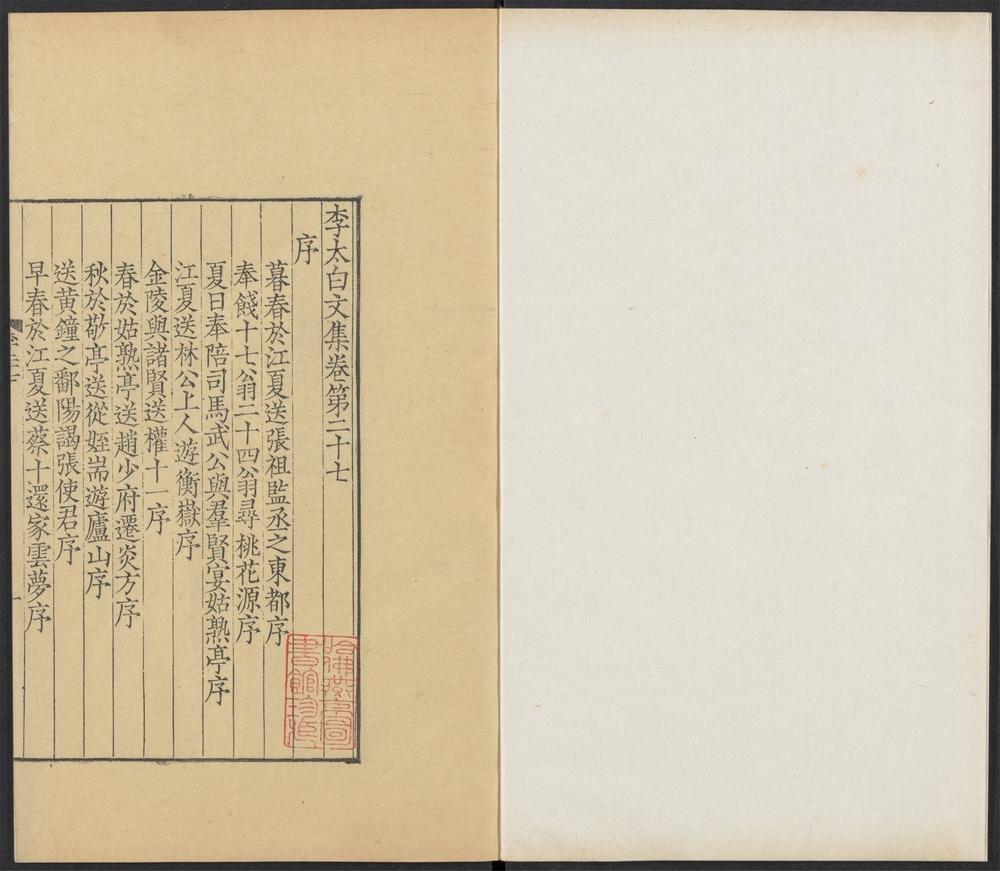 李太白文集卷第二十七
序
暮春於江夏送張祖監丞之東都序
奉餞十七翁二十四翁尋桃花源序
夏日奉陪司馬武公與羣賢宴姑熟亭序
江夏送林公上人遊衡嶽序
金陵與諸賢送權十一序
春於姑熟亭送趙少府遷炎方序
秋於敬亭送從姪耑遊廬山序
送黃鐘之鄱陽謁張使君序
早春於江夏送蔡十還家雲夢序
哈佛燕京圖
書館珍藏